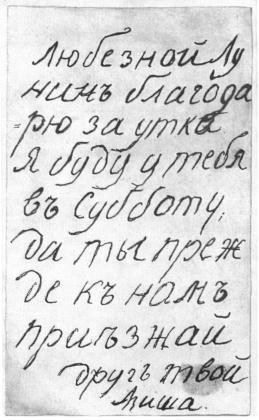 Любезной Лу
нинъ благода
=рю за утки
я буду у тебя
въ Субботу,
да ты преж
де къ намъ
приѣзжай
другъ твой
Миша.